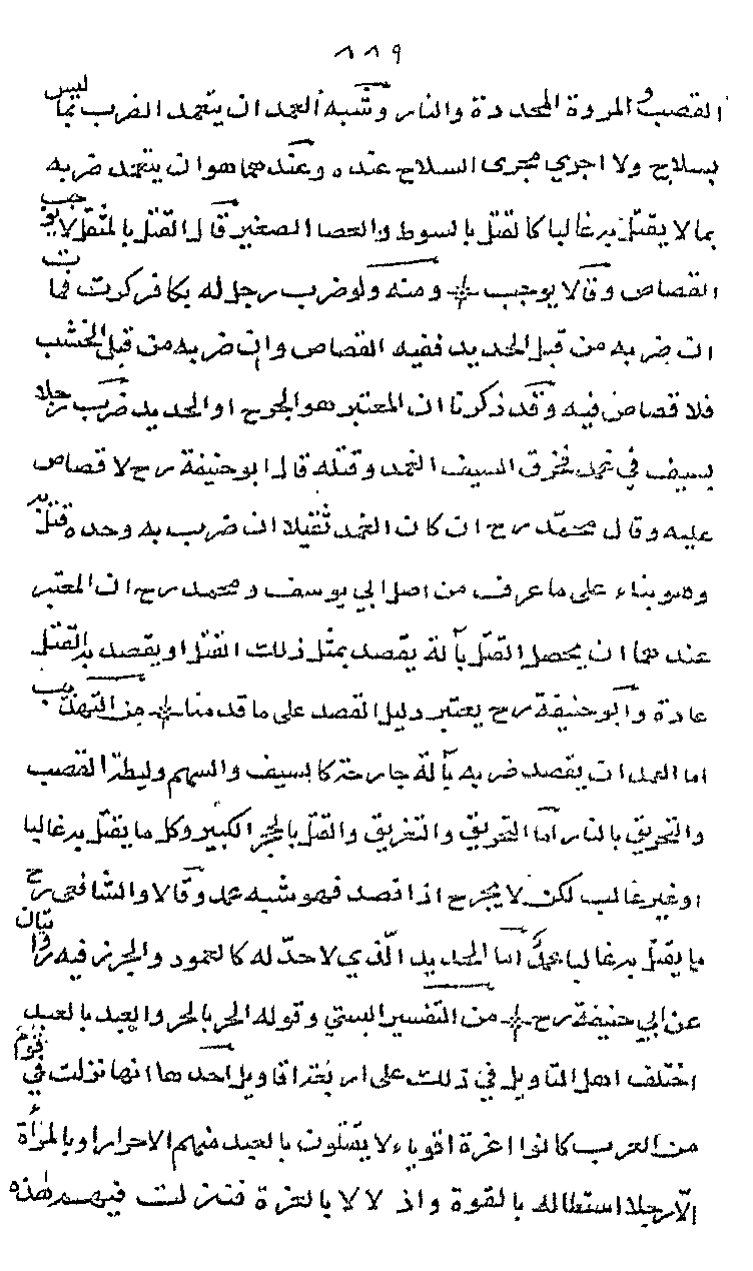 ٨٨٩
القصب والمروة المحددة والنار وشبه العمد ان يتعمد الضرب بما ليس
بسلاح ولا اجري مجرى السلاح عنده وعندهما هو ان يتعمد ضربه
بما لا يقتل به غالبا كالقتل بالسوط والعصا الصغير قال القتل بالمثقل لا يوجب
القصاص وقالا يوجب ومنه ولو ضرب رجل له بكافركوت فمات
ان ضربه من قبل الحديد ففيه القصاص وان ضربه من قبل الخشب
فلا قصاص فيه وقد ذكرنا ان المعتبر هو الجرح او الحديد ضرب رجلا
بسيف في غمد فخرق السيف الغمد وقتله قال ابو حنيفة رح لا قصاص
عليه وقال محمد رح ان كان الغمد ثقيلا ان ضرب به وحده قتل به
وهو بناء على ما عرف من اصل ابي يوسف ومحمد رح ان المعتبر
عندهما ان يحصل القتل بآلة يقصد بمثل ذلك القتل او يقصد به القتل
عادة وابو حنيفة رح يعتبر دليل القصد على ما قدمنا من التهذيب
اما العمد ان يقصد ضربه بآلة جارحة كالسيف والسهم وليطة القصب
والتحريق بالنار اما التخويق والتغريق والقتل بالحجر الكبير وكل ما يقتل به غالبا
او غير غالب لكن لا يجرح اذا قصد فهو شبه عمد وقالا والشافعي رح
ما يقتل به غالبا عمد اما الحديد الذي لا حد له كالعمود والجرز فيه روايتان
عن ابي حنيفة رح من التفسير البستي وقوله الحر بالحر والعبد بالعبد
اختلف اهل التاويل في ذلك على اربعة اقاويل احدها انها نزلت في قوم
من العرب كانوا اعزة اقوياء لا يقتلون بالعبد منهم الا حرا وبالمرأة
الا رجلا استطالة بالقوة واذلالا بالعزة فنزلت فيهم هذه